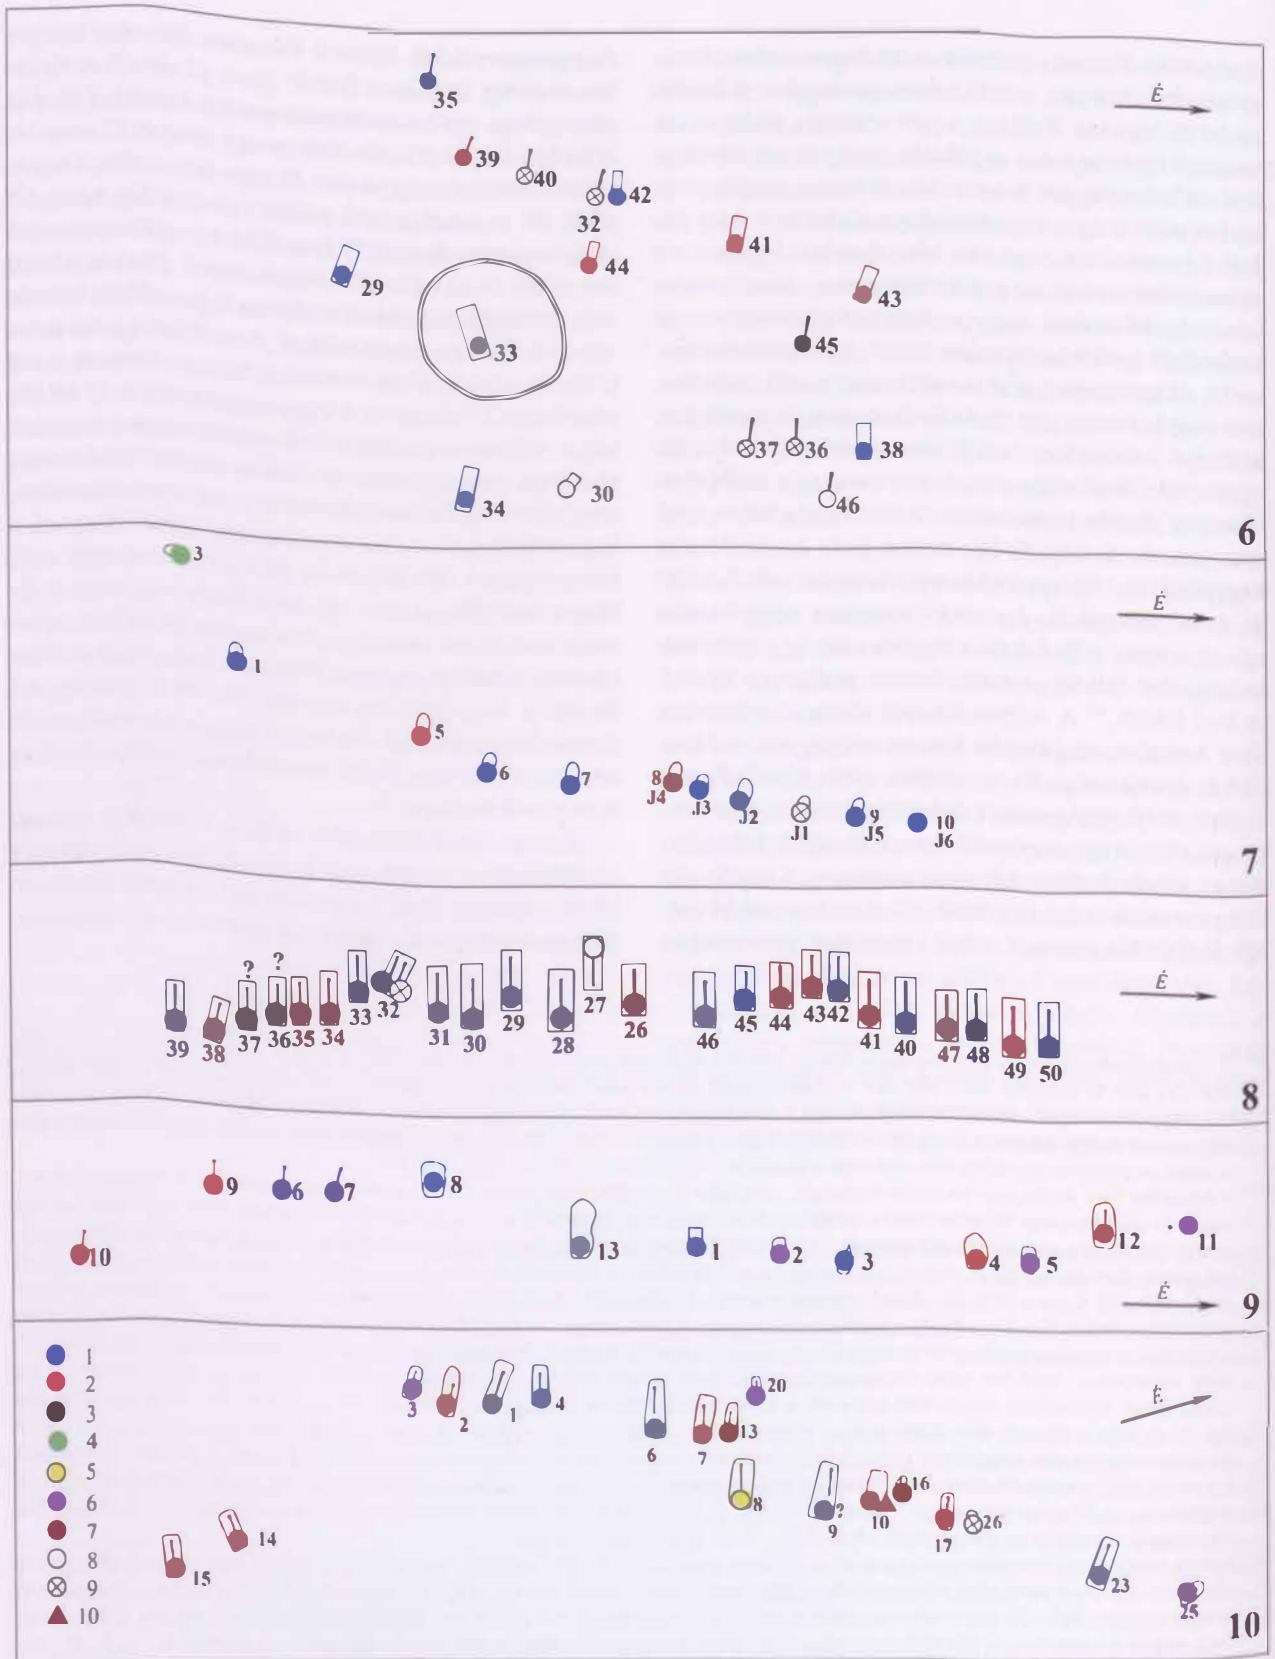 35
Ė
39
40
32
42
41
44
29
43
33
45
37
36
38
34
30
46
6
3
Ė
1
5
6
7
8
J4
J3
J2
J1
9
J5
10
J6
7
?
?
Ė
39
38
37
36
35
34
33
32
31
30
29
28
27
26
46
45
44
43
42
41
40
47
48
49
50
8
9
6
7
8
10
13
1
2
3
4
5
12
11
Ė
9
1
2
3
4
5
6
7
8
9
10
3
2
1
4
6
7
13
20
8
9
?
10
16
17
26
14
15
23
25
Ė
10